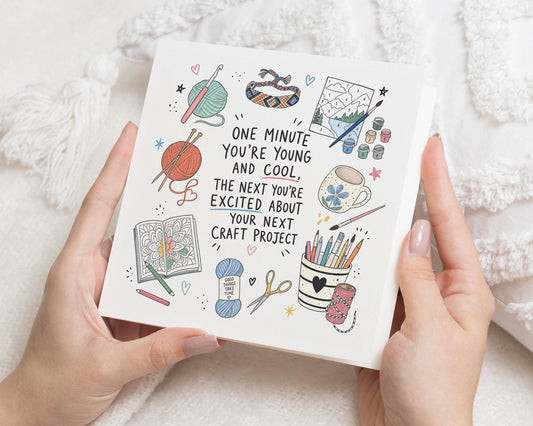 ONE MINUTE
YOU'RE YOUNG
AND COOL,
THE NEXT YOU'RE
EXCITED ABOUT
YOUR NEXT
CRAFT PROJECT
GOOD
THINGS
TAKE
TIME